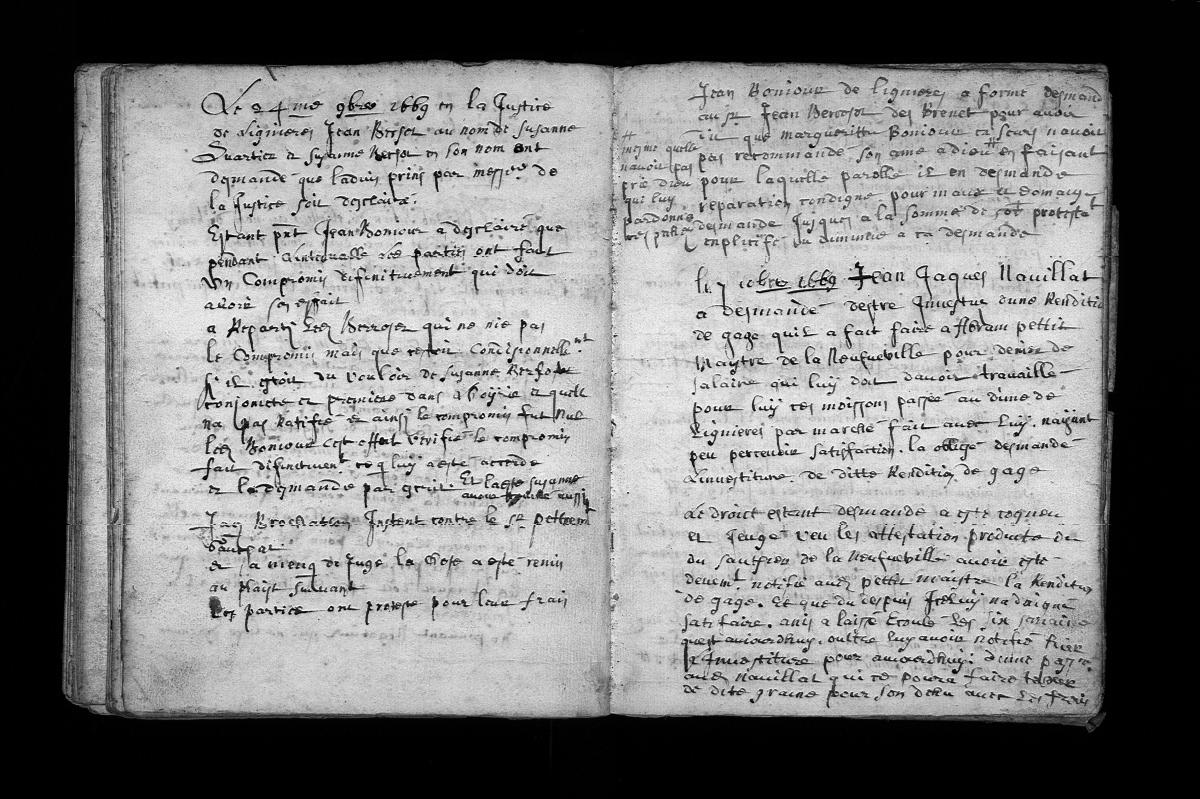 Le 24me 9bre 1669 en la Justice
de Lignieres Jean Bersot au nom de Susanne
Quartier et Susanne Bersot en son nom ont
demandé que ladvis prins par messrs de
la Justice soit desclairé.
Estant pnt Jean Bonjour a desclairé que
pendant lintervalle les parties ont fait
un Compromis difinitivement qui doit
avoir son effait
a Reparty Bersot qui ne nie pas
le Compromis mais que cestoit Condisionnellemt
S'il estoit du vouloir de Susanne Bersot
conjoincte et premiere dans et quelle
na pas Ratiffié et ainsi le compromis fut Nul
Bonjour cest offert verifié le compromis
fait difinitivemt ce q luy a esté accordé
et le demande par Et ladte Susanne
avoir aussi
Brochaton Instent contre le Sr petremt
Gauchat
et sa menq de Juge la Chose a esté remis
au plaist suivant
Les parties ont protesté pour leur frais
Jean Bonjour de lignieres a formé desmand
au Sr Jean Bersot des Brenet pour avoir
dit que margueritte Bonjour sa seur navoit
pas recommandé son ame a dieu # en faisant
pour laquelle parolle il en desmande
reparation condigne pour maux et domages
desmande Jusques a la somme de protesta
enplicité ou diminué a ca desmande
#
mesme quelle
navoit pas
prié dieu
qui luy
pardonne
ses
le 7 10bre 1669 Jean Jaques Navillat
a desmandé destre Investu dune Renditio
de gage quil a fait faire a Abram pettit
maytre de la Neufveville pour denier de
salaire qui luy doit davoir travaillé
pour luy ces moissons passée au dime de
Lignieres par marché fait avec luy. nayant
peu percevoir satisfaction. la obligé desmandé
Linvestiture. de ditte Rendition de gage
Le droit estant desmandé a esté cogneu
et Jeugé veu les attestation produite du
du Sautier de la Neufveville avoir esté
devemt notiffié aud pettit maistre la Rendition
de gage. Et que du despuis Icelluy na daigné
satifaire. ains a laissé Ecoulé Les six semaine
quest aujourdhuy. oultre luy avoir notiffié hier
L'Investiture pour aujourdhuy. dont
aud Navillat qui ce poura faire taxer
de dite graine pour son dheu avec Les frais